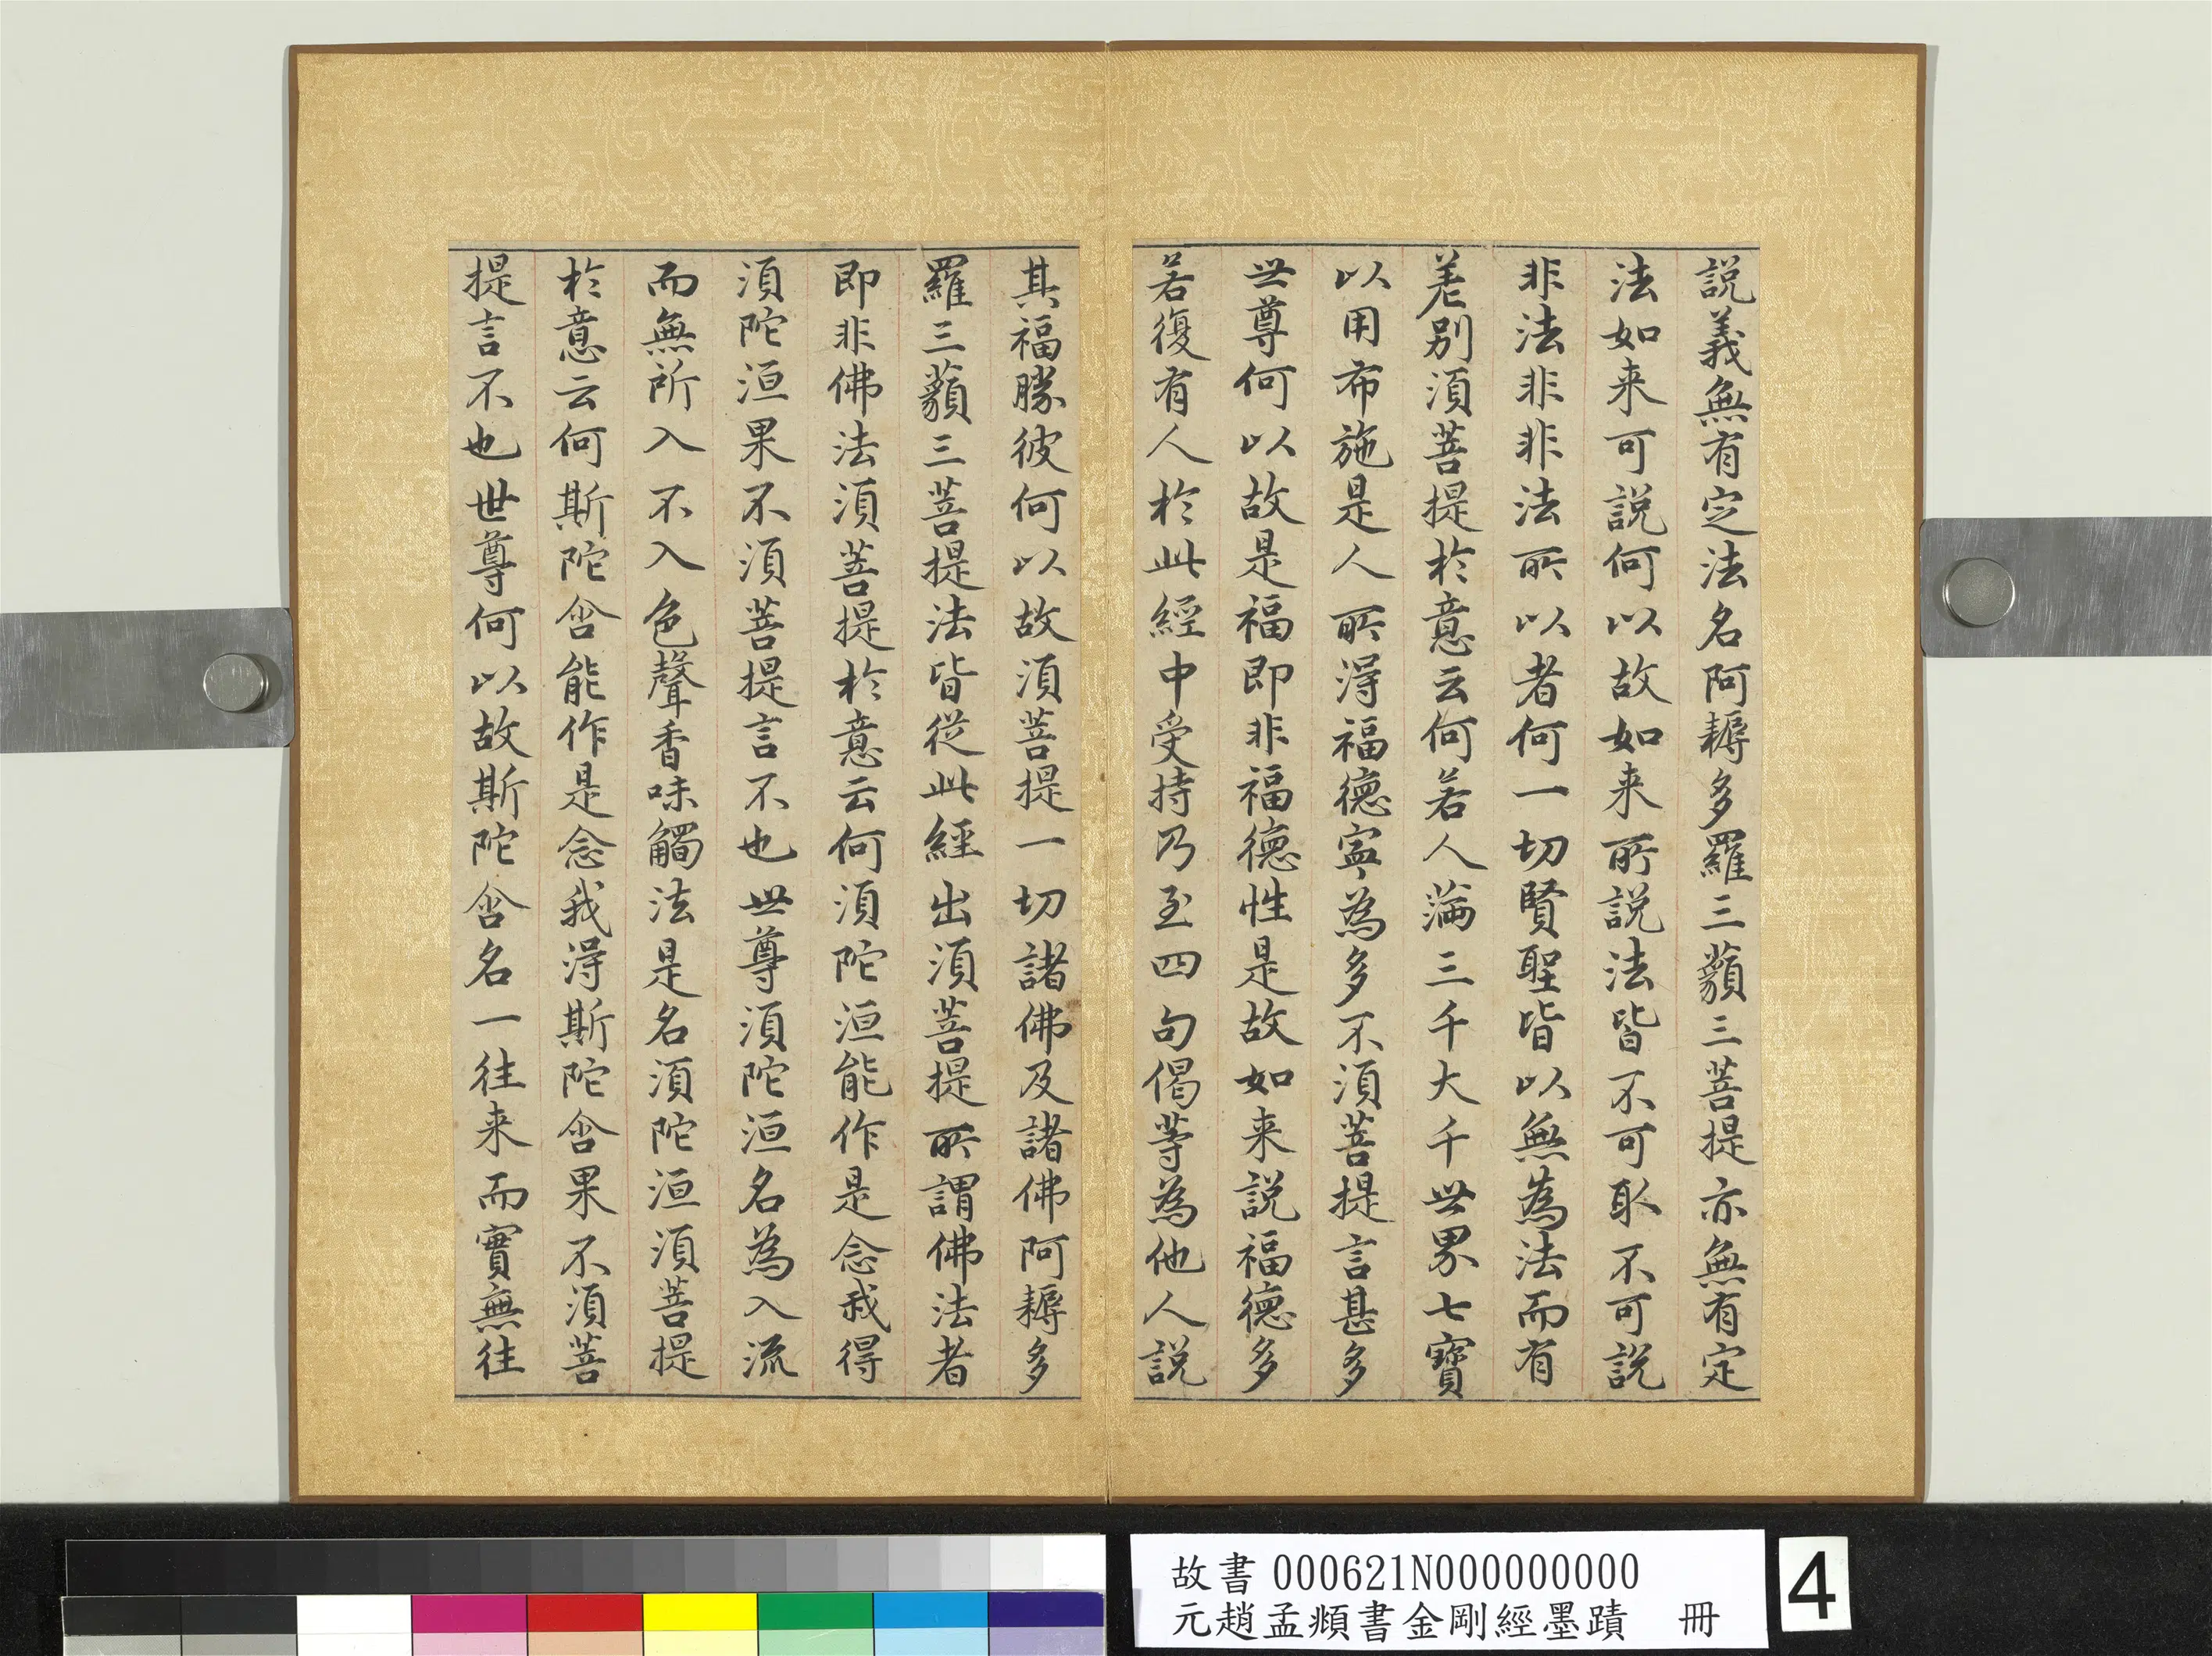 説義無有定法名阿耨多羅三藐三菩提亦無有定
法如来可說何以故如来所說法皆不可取不可說
非法非非法所以者何一切賢聖皆以無為法而有
差別須菩提於意云何若人滿三千大千世界七寶
以用布施是人所得福德寧為多不須菩提言甚多
世尊何以故是福即非福德性是故如来說福德多
若復有人於此經中受持乃至四句偈等為他人說
其福勝彼何以故須菩提一切諸佛及諸佛阿耨多
羅三藐三菩提法皆從此經出須菩提所謂佛法者
即非佛法須菩提於意云何須陀洹能作是念我得
須陀洹果不須菩提言不也世尊須陀洹名為入流
而無所入不入色聲香味觸法是名須陀洹須菩提
於意云何斯陀含能作是念我得斯陀含果不須菩
提言不也世尊何以故斯陀含名一往来而實無往
故書 000621N000000000
元趙孟頫書金剛經墨蹟 冊
4